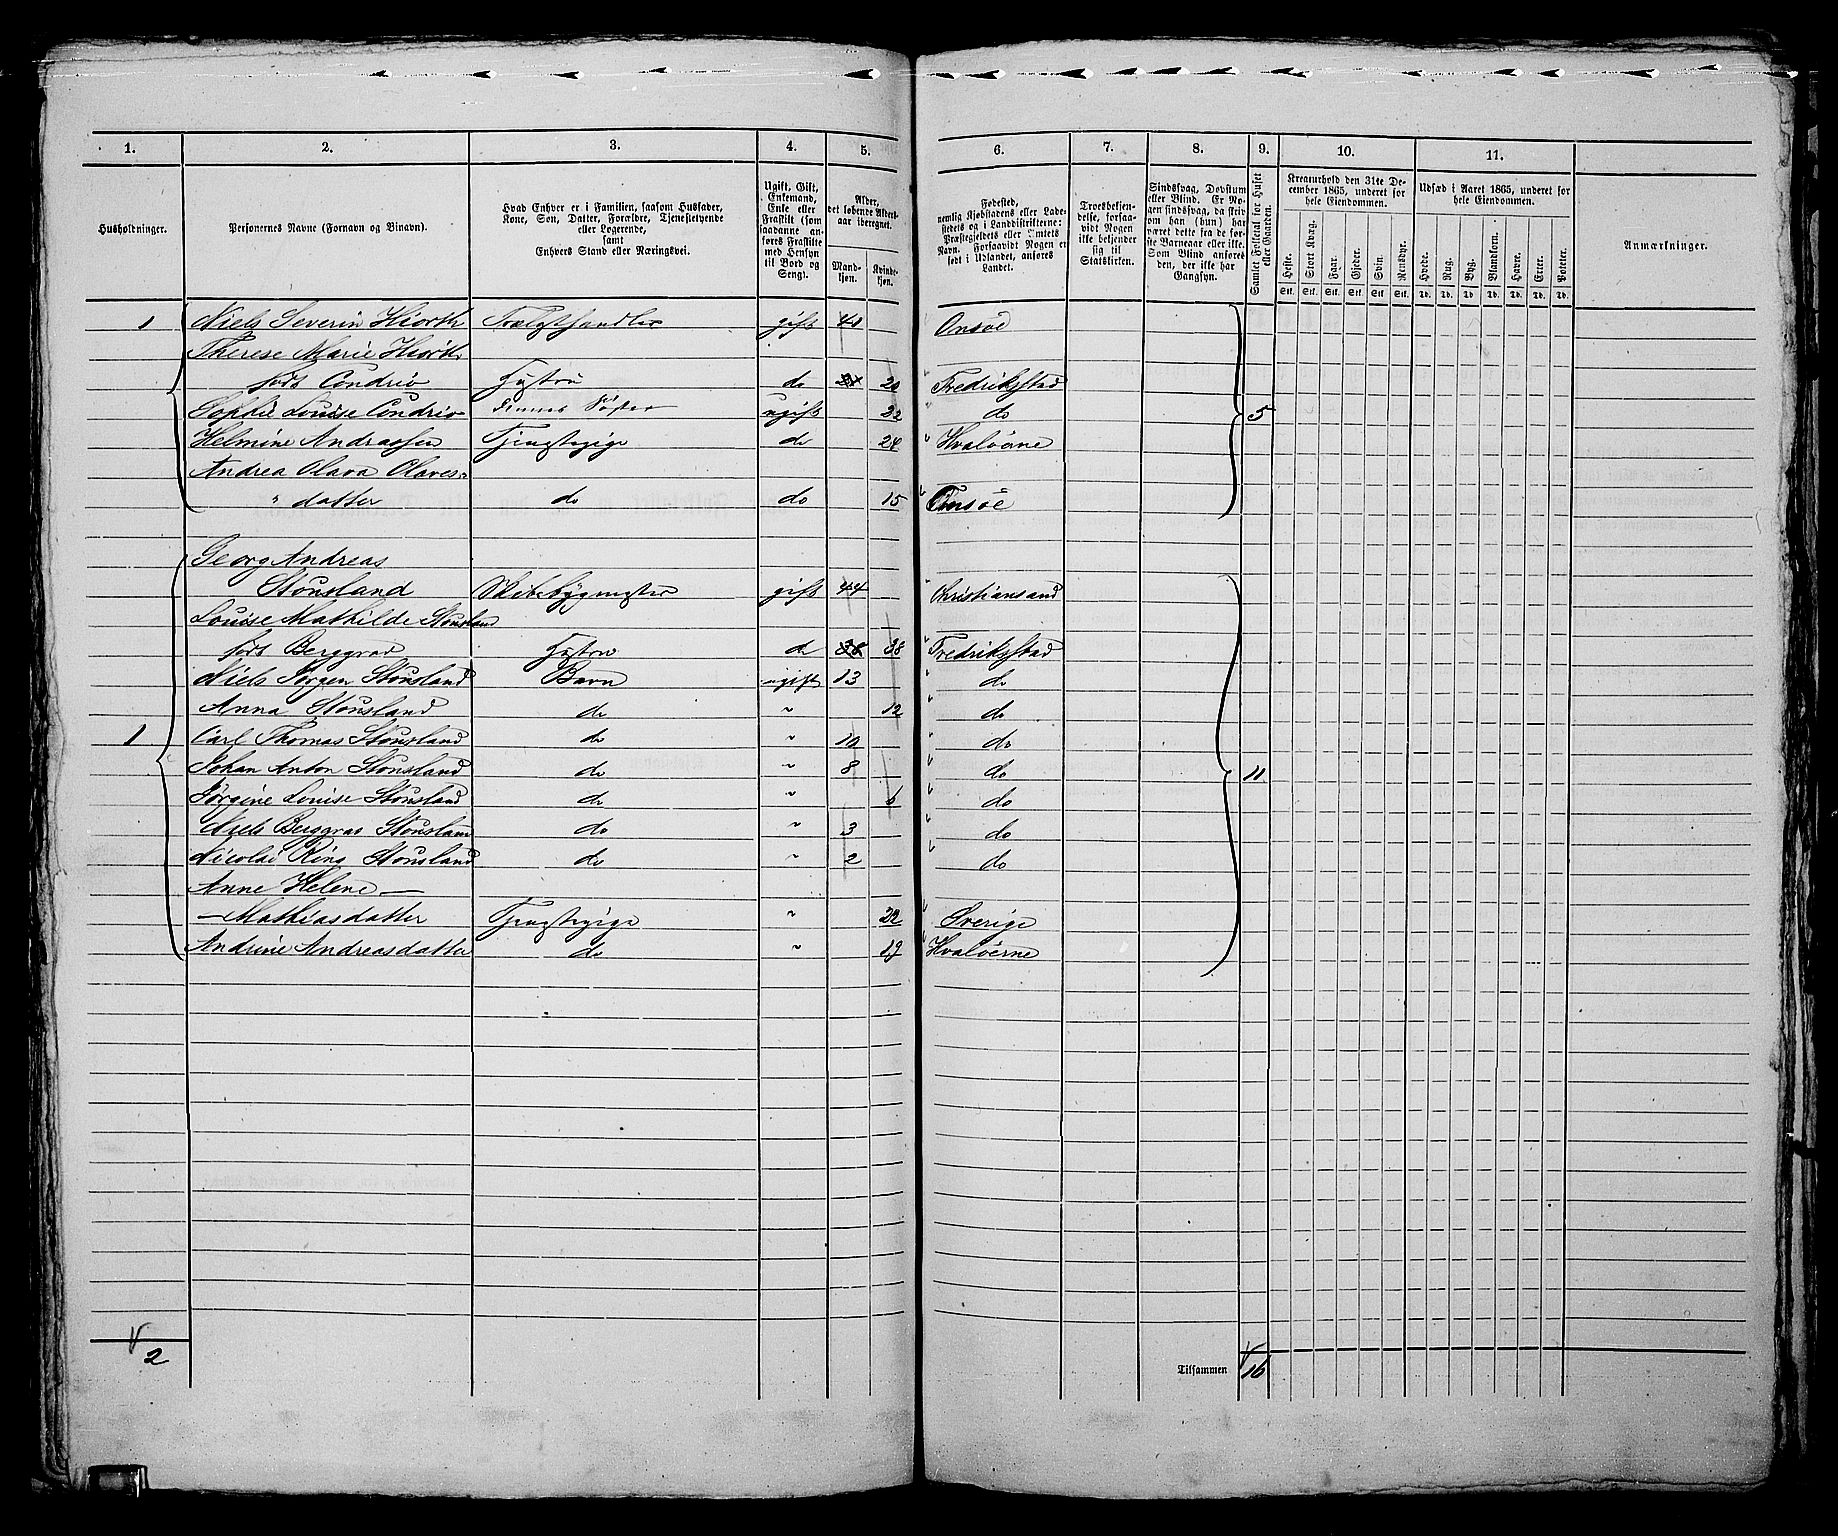 1. 2. 3. 4. 5. 6. 7. 8. 9. 10. 11.
Husholdninger.
Personernes Navne (Fornavn og Binavn).
Hvad Enhver er i Familien, saasom Husfader,
Kone, Søn, Datter, Forældre, Tjenestetyende
eller Logerende,
samt
Enhvers Stand eller Næringsvei.
Ugift, Gift,
Enkemand,
Enke eller
Fraskilt (som
saadanne an-
føres Fraskilte
med Hensyn
til Bord og
Seng).
Alder,
det løbende Alders-
aar iberegnet.
Mand-
kjøn.
Kvinde-
kjøn.
Fødested,
nemlig Kjøbstadens eller Lade-
stedets og i Landdistrikterne:
Præstegjeldets eller Amtets
Navn. Forsaavidt Nogen er
født i Udlandet, anføres
Landet.
Troesbekjen-
delse, forsaa-
vidt Nogen
ikke bekjender
sig til
Statskirken.
Sindssvag, Døvstum
eller Blind. Er No-
gen sindssvag, da skriv
om han (hun) har
været dette fra de før-
ste Barneaar eller ikke.
Som Blind anføres
den, der ikke har
Gangsyn.
Samlet Folketal for Huset
eller Gaarden.
Kreaturhold den 31te De-
cember 1865, underet for
hele Eiendommen.
Heste. Stort Kvæg. Faar. Gjeder. Svin. Rensdyr.
Stk. Stk. Stk. Stk. Stk. Stk.
Udsæd i Aaret 1865, underet for
hele Eiendommen.
Hvede. Rug. Byg. Blandkorn. Havre. Erter. Poteter.
Td. Td. Td. Td. Td. Td. Td.
Anmærkninger.
1 Niels Severin Hiorth Trælasthandler gift 40 Onsøe
Therese Marie Hiorth
føds Condrio Hustru do 20 Fredrikstad
Sophie Louise Condrio Hinnes Søster ugift 22 do 5
Helmine Andreassen Tjenestepige do 24 Hvaløerne
Andrea Olava Olaves-
" datter do do 15 Onsøe
Georg Andreas
Stousland Skibsbygmester gift 44 Christiansand
Louise Mathilde Stousland
føds Berggrav Hustru do 38 Fredrikstad
Niels Jørgen Stousland Barn ugift 13 do
Anna Stousland do " 12 do
1 Carl Thomas Stousland do " 10 do
Johan Anton Stousland do " 8 do 11
Jørgine Louise Stousland do " 6 do
Niels Berggrav Stousland do " 3 do
Nicolai Ring Stousland do " 2 do
Anne Helene —
— Mathiasdatter Tjenestepige " 22 Sverige
Andrine Andreasdatter do " 19 Hvaløerne
2 Tilsammen 16